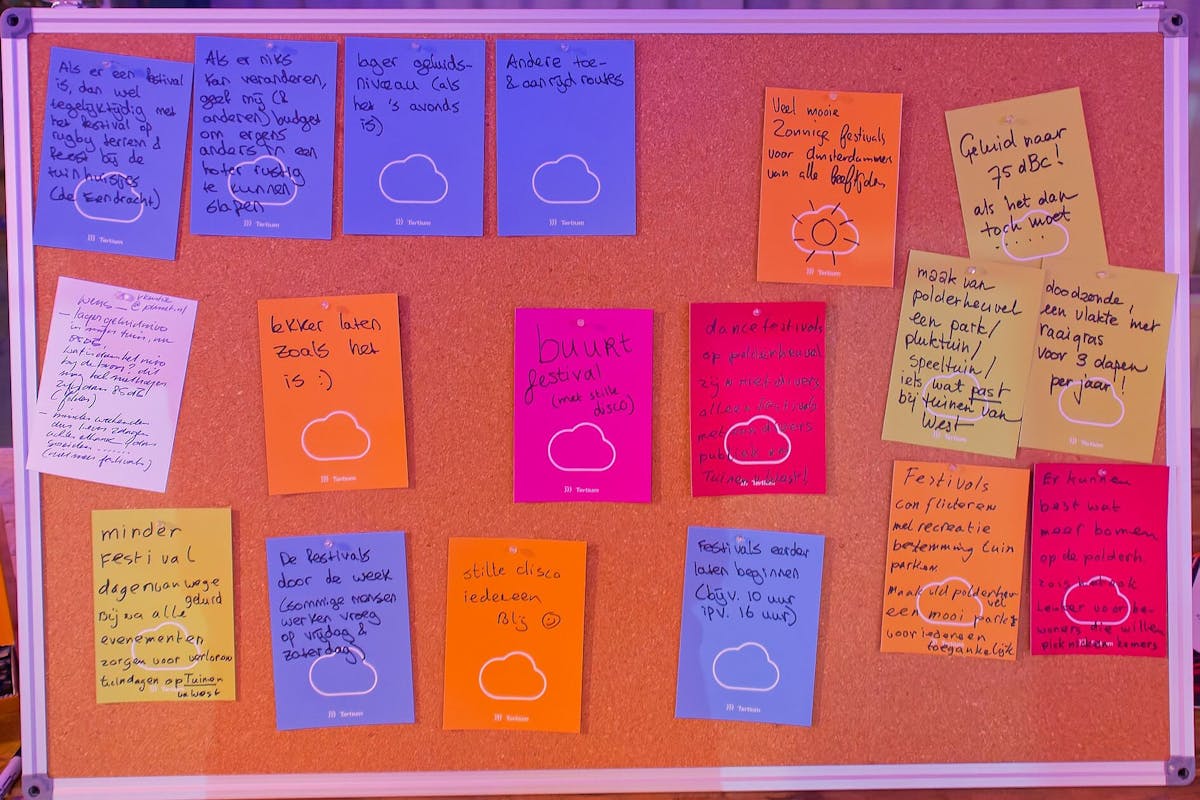 Als er een festival
is, dan wel
tegelijktijdig met
het festival op
rugby terrein &
feest bij de
tuinhuisjes
(de Eendracht)
Tertium
Als er niks
kan veranderen,
geef mij (&
anderen) budget
om ergens
anders in een
hotel rustig
te kunnen
slapen
Tertium
lager geluids-
niveau (als
het 's avonds
is)
Tertium
Andere toe-
& aanrijd routes
Tertium
Veel mooie
Zonnige festivals
voor Amsterdammers
van alle leeftijden
Tertium
Geluid naar
75 dBc!
als het dan
toch moet
.....
wens
@planet.nl
- lager geluidsniveau
in mijn tuin, nu
85dB,
bij de bron? dit
85dB
(folders)
- minder weekenden
(niet meer festivals)
lekker laten
zoals het
is :)
Tertium
buurt
festival
(met stille
disco)
Tertium
dancefestivals
op polderheuvel
zijn niet divers
alleen festivals
met een divers
publiek
Tuinen v West!
maak van
polderheuvel
een park/
pluktuin/
speeltuin/
iets wat past
bij tuinen van
West
Tertium
doodzonde,
een vlakte met
raaigras
voor 3 dagen
per jaar!
Tertium
minder
festival
dagen vanwege
geluid
Bijna alle
evenementen
zorgen voor verloren
tuindagen op Tuinen
van West
De festivals
door de week
(sommige mensen
werken vroeg
op vrijdag &
zaterdag)
Tertium
stille disco
iedereen
Blij ☺
Tertium
Festivals eerder
laten beginnen
(bijv. 10 uur
ipv. 16 uur)
Tertium
Festivals
conflicteren
met recreatie
bestemming tuin
parken
Maak v/d polderheu-
vel
een mooi park
voor iedereen
toegankelijk
Er kunnen
best wat
meer bomen
op de polderh.
leuker voor be-
woners die willen
picknicken zomers